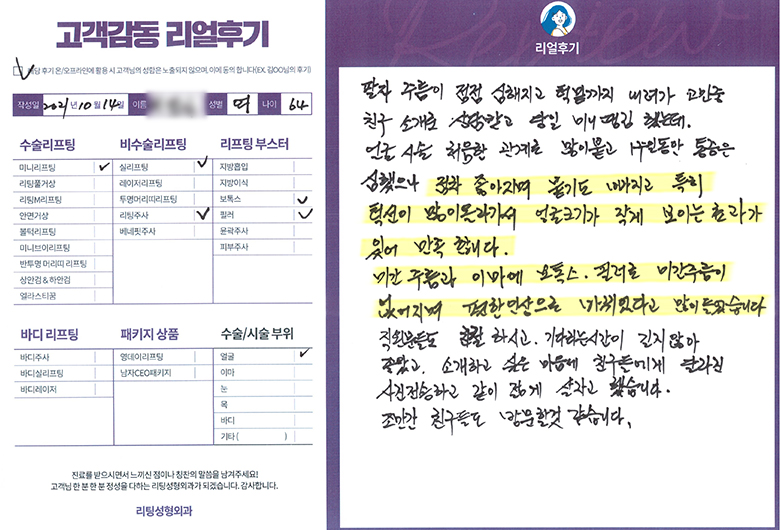 고객감동 리얼후기
해당 후기 온/오프라인에 활용 시 고객님의 성함은 노출되지 않으며, 이에 동의 합니다(EX. 김OO님의 후기)
작성일 2021년 10월 14일 이름 성별 여 나이 64
수술리프팅 비수술리프팅 리프팅 부스터
미니리프팅 실리프팅 지방흡입
리팅풀거상 레이저리프팅 지방이식
리팅M리프팅 투명머리띠리프팅 보톡스
안면거상 리팅주사 필러
볼턱리프팅 베네핏주사 윤곽주사
미니브이리프팅 피부주사
반투명 머리띠 리프팅
상안검 & 하안검
엘라스티꿈
바디 리프팅 패키지 상품 수술/시술 부위
바디주사 영데이리프팅 얼굴
바디실리프팅 남자CEO패키지 이마
바디레이저 눈
목
바디
기타 ( )
진료를 받으시면서 느끼신 점이나 칭찬의 말씀을 남겨주세요!
고객님 한 분 한 분 정성을 다하는 리팅성형외과가 되겠습니다. 감사합니다.
리팅성형외과
리얼후기
팔자 주름이 점점 심해지고 턱 까지 내려가 고민중
친구 소개로 상담받고 당일 미니땡김 했는데.
얼굴 시술 처음한 관계로 많이붓고 1주일동안 통증은
심했으나 점차 좋아지며 붓기도 빠지고 특히
턱선이 많이올라가서 얼굴크기가 작게 보이는 효과가
있어 만족 합니다.
미간 주름과 이마에 보톡스. 필러로 미간주름이
없어지며 편한인상으로 바뀌었다고 많이들었습니다
직원분들도 친절 하시고. 기다리는시간이 길지 않아
좋았고, 소개하고 싶은 마음에 친구들에게 달라진
사진전송하고 같이 젊게 살자고 했습니다.
조만간 친구들도 방문할것 같습니다.